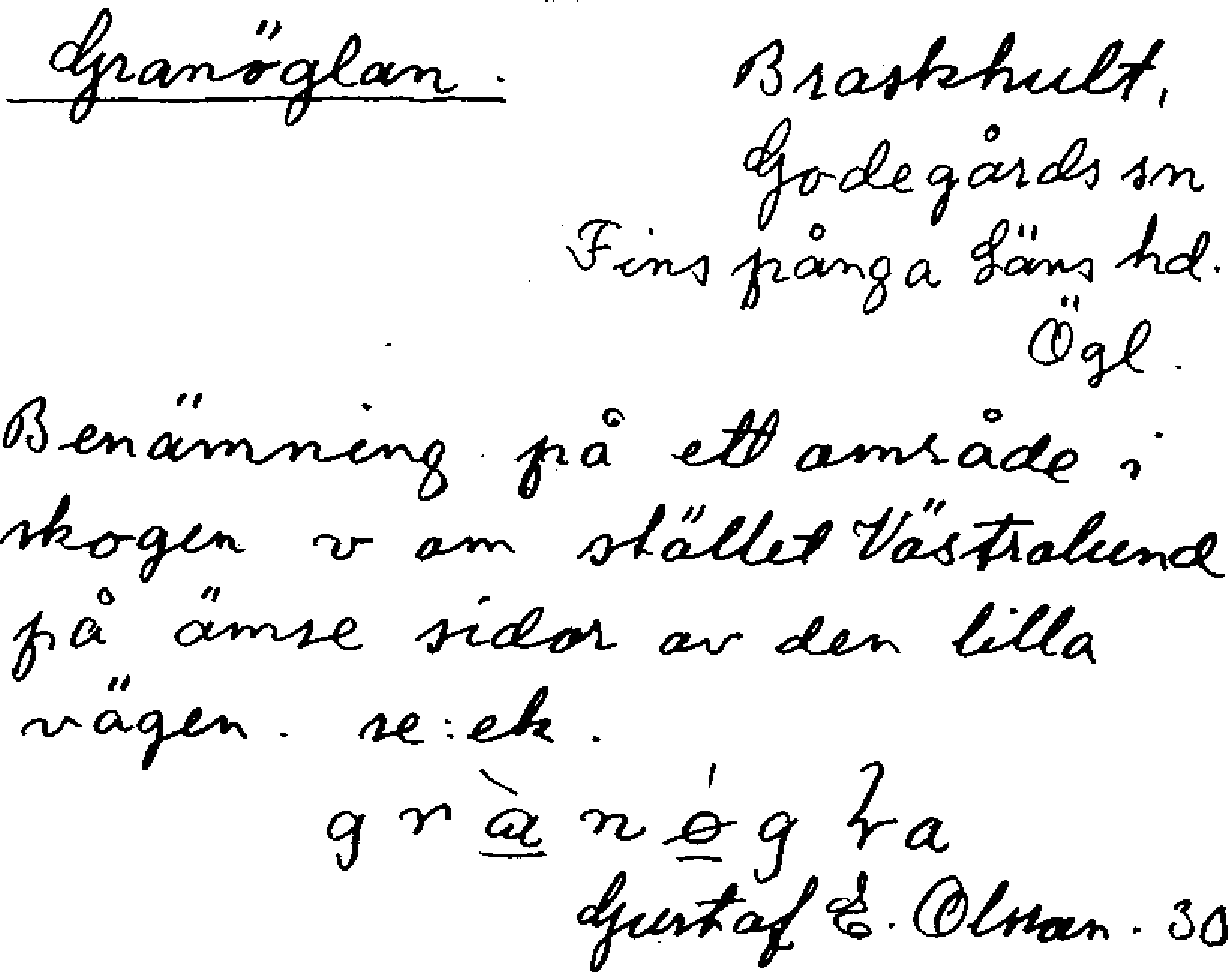 Granöglan.
Braskhult,
Godegårds sn
Finspånga Läns hd.
Ögl.
Benämning på ett område i
skogen v om stället Västralund
på ömse sidor av den lilla
vägen. se: ek.
Gustaf E. Olsson. 30